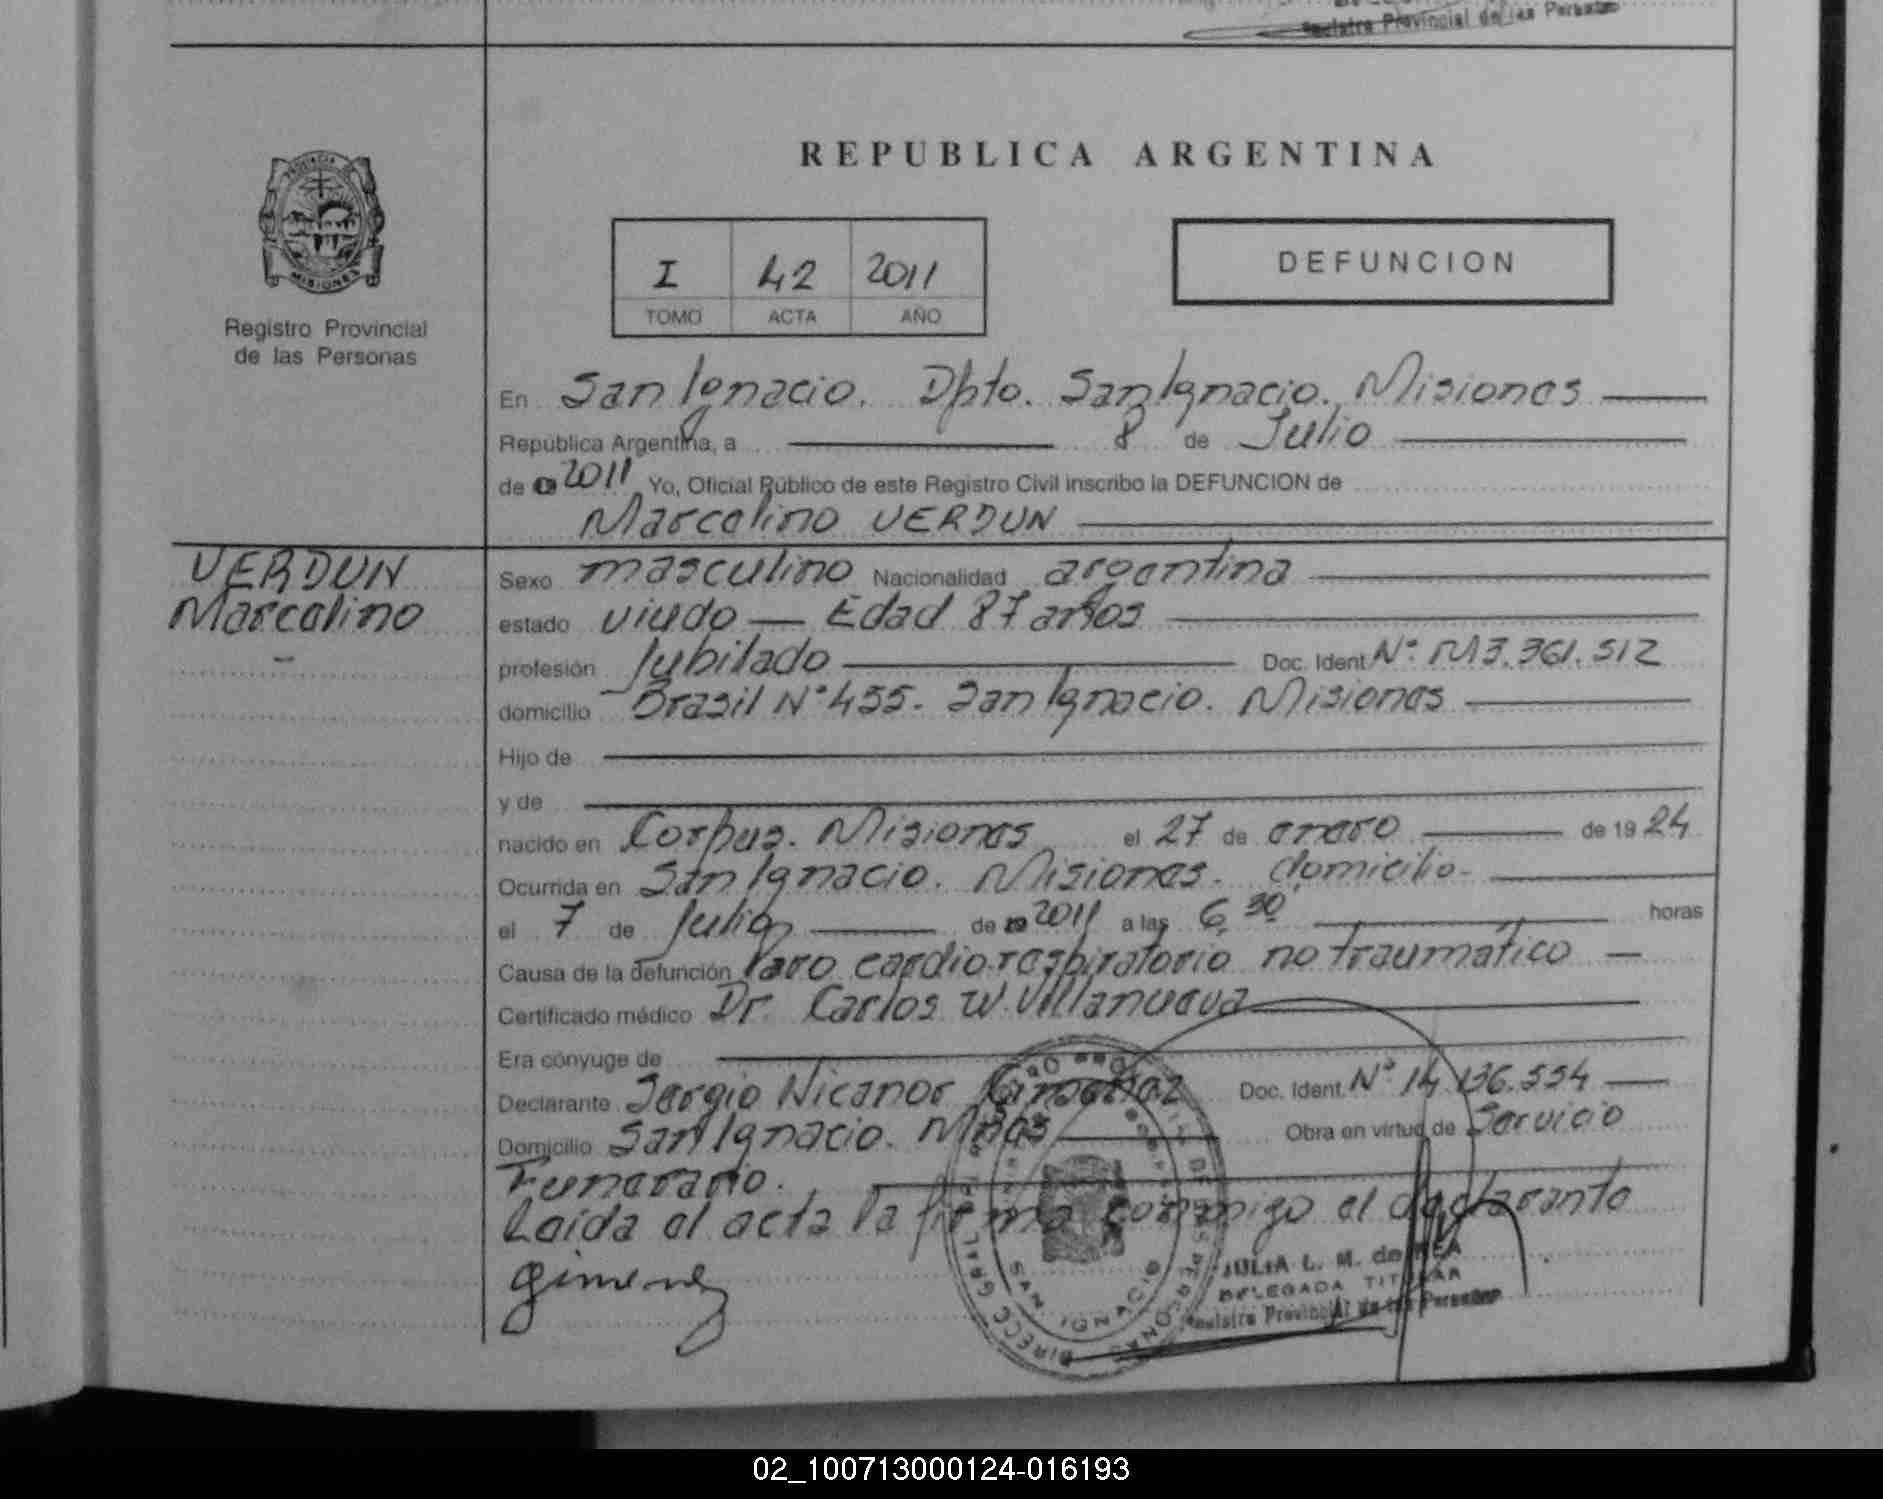 Registro Provincial de las Personas
REPUBLICA ARGENTINA
PROVINCIA
MISIONES
Registro Provincial
de las Personas
I 42 2011
TOMO ACTA AÑO
DEFUNCION
En San Ignacio. Dpto. San Ignacio. Misiones
República Argentina, a 8 de Julio
de 2011 Yo, Oficial Público de este Registro Civil inscribo la DEFUNCION de
Marcelino VERDUN
VERDUN
Marcelino
Sexo masculino Nacionalidad argentina
estado viudo — Edad 87 años
profesión Jubilado Doc. Ident. Nº M3.361.512
domicilio Brasil Nº 455. San Ignacio. Misiones
Hijo de
y de
nacido en Corpus. Misiones el 27 de enero de 1924
Ocurrida en San Ignacio. Misiones. domicilio-
el 7 de Julio de 2011 a las 6,30 horas
Causa de la defunción Paro cardiorespiratorio no traumático —
Certificado médico Dr. Carlos W. Villanueva
Era cónyuge de
Declarante Sergio Nicanor Gimenez Doc. Ident. Nº 14.136.554
Domicilio San Ignacio. Mnes Obra en virtud de Servicio
Funerario.
Leída el acta la firma conmigo el declarante
Gimenez
JULIA L. M. de REA
DELEGADA TITULAR
Registro Provincial de las Personas
SAN IGNACIO
02_100713000124-016193